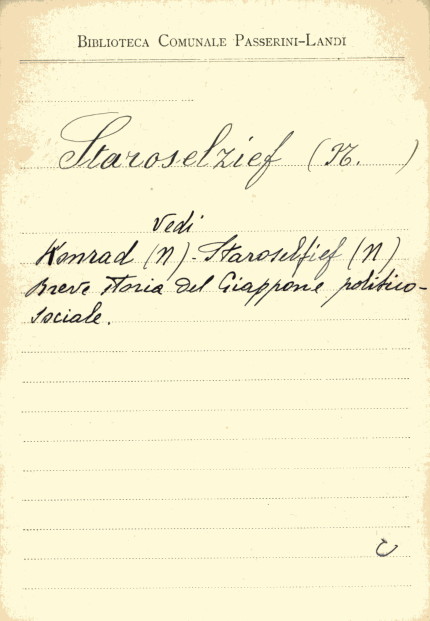 BIBLIOTECA COMUNALE PASSERINI-LANDI
Staroselzief (N. )
Vedi
Konrad (N) - Staroselfief (N)
Breve storia del Giappone politico-
sociale.
C